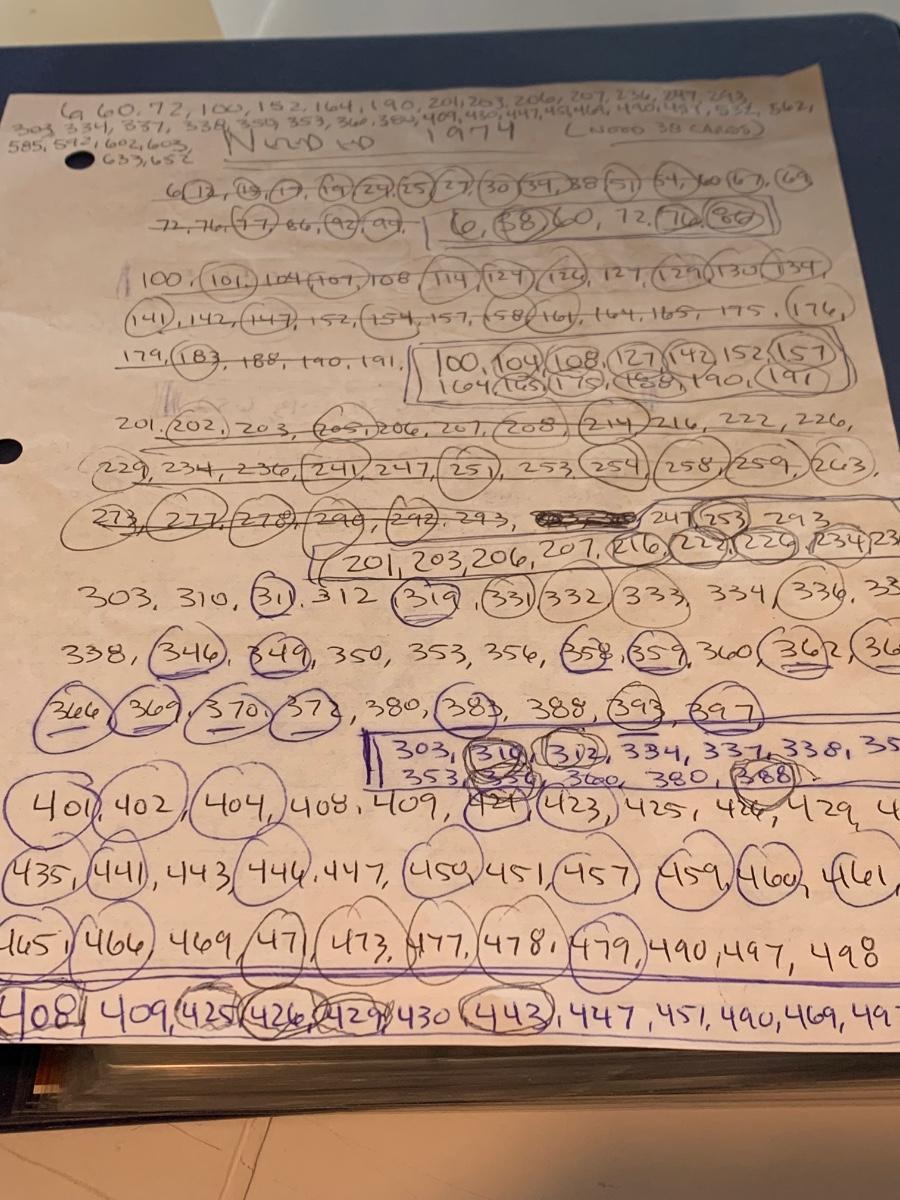 6, 60, 72, 100, 152, 164, 190, 201, 203, 206, 207, 236, 247, 293,
303, 334, 337, 338, 350, 353, 360, 380, 409, 430, 447, 451, 469, 490, 497, 562,
585, 592, 602, 603, 1974 (NEED 38 CARDS)
633, 652
6, 12, 17, 19, 24, 25, 27, 30, 39, 58, 51, 54, 60, 67, 69
72, 76, 77, 86, 92, 94, 6, 58, 60, 72, 76, 86
100, 101, 104, 107, 108, 114, 124, 126, 127, 129, 130, 134,
141, 142, 147, 152, 154, 157, 158, 161, 164, 165, 175, 176,
179, 183, 188, 190, 191, 100, 104, 108, 127, 142, 152, 157
164, 165, 175, 188, 190, 191
201, 202, 203, 205, 206, 207, 208, 214, 216, 222, 226,
229, 234, 236, 241, 247, 251, 253, 254, 258, 259, 263,
273, 277, 278, 290, 292, 293, 247, 253, 293
201, 203, 206, 207, 216, 222, 226, 234, 23
303, 310, 311, 312, 319, 331, 332, 333, 334, 336, 33
338, 346, 349, 350, 353, 356, 358, 359, 360, 362, 36
366, 369, 370, 372, 380, 383, 388, 393, 397
303, 310, 312, 334, 337, 338, 35
353, 356, 360, 380, 388
401, 402, 404, 408, 409, 421, 423, 425, 426, 429, 4
435, 441, 443, 446, 447, 450, 451, 457, 459, 460, 461,
465, 466, 469, 471, 473, 477, 478, 479, 490, 497, 498
408, 409, 425, 426, 429, 430, 443, 447, 451, 490, 469, 497